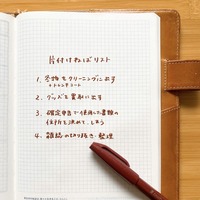 片付けねばリスト
1. 冬物をクリーニングに出す
+トレンチコート
2. グッズを買取に出す
3. 確定申告で使用した書類の
住所を決めて、しまう
4. 雑誌の切り抜き・整理